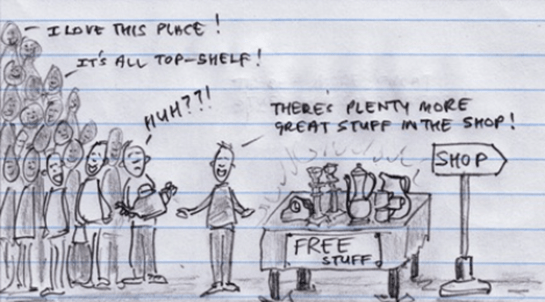 I LOVE THIS PLACE!
IT'S ALL TOP-SHELF!
HUH??!
THERE'S PLENTY MORE
GREAT STUFF IN THE SHOP!
SHOP
FREE
STUFF